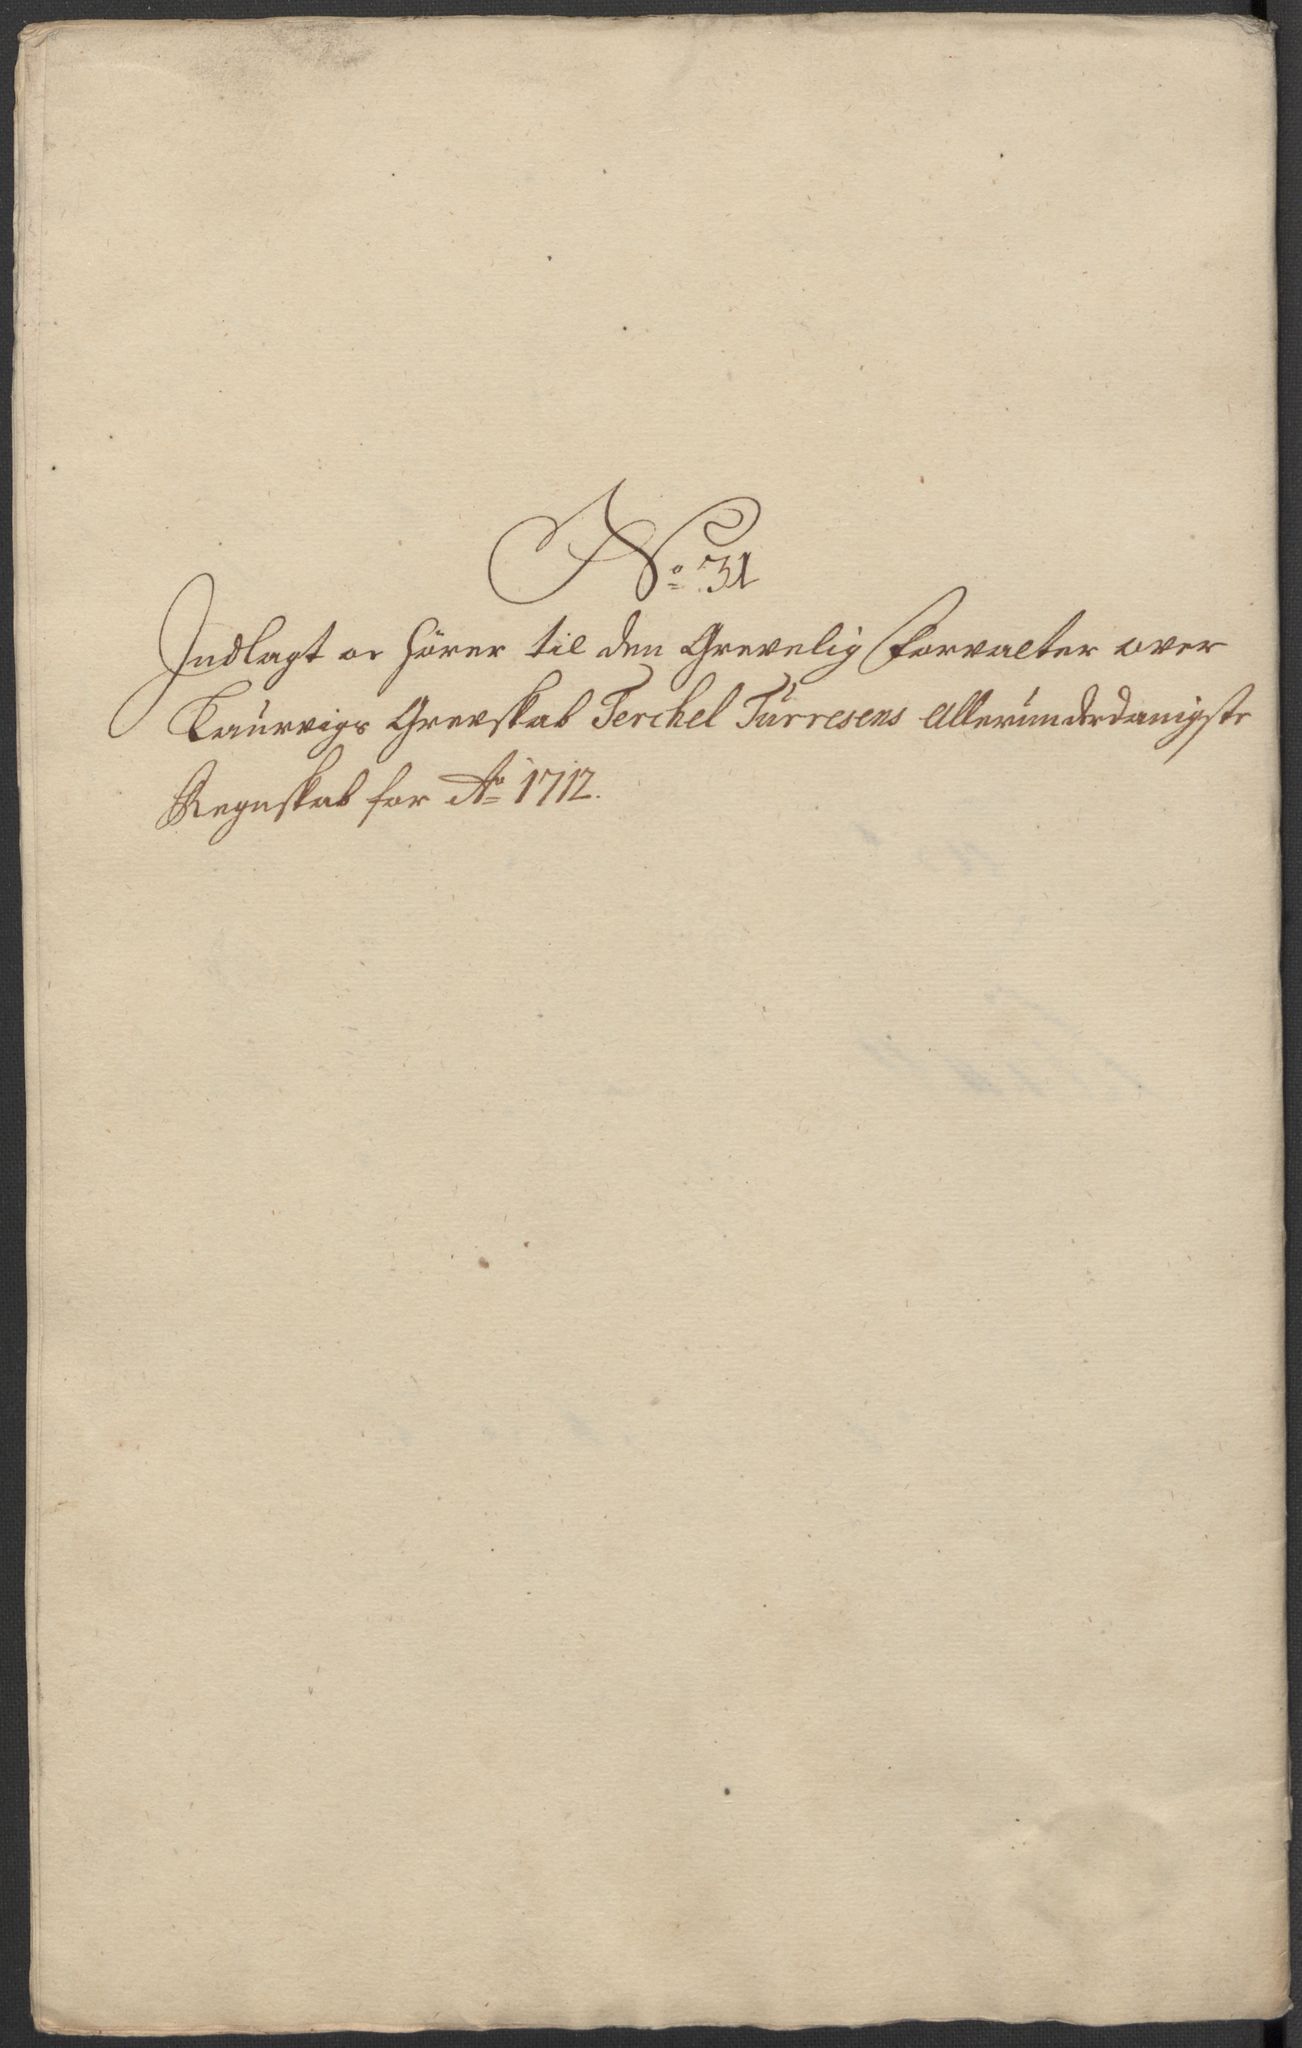 No. 31
Indlagt oc hörer til den Grevelig Forvalter over
Laurvigs Grevskab Terchel Turresens Allerunderdanigste
Regnskab for Ao 1712.